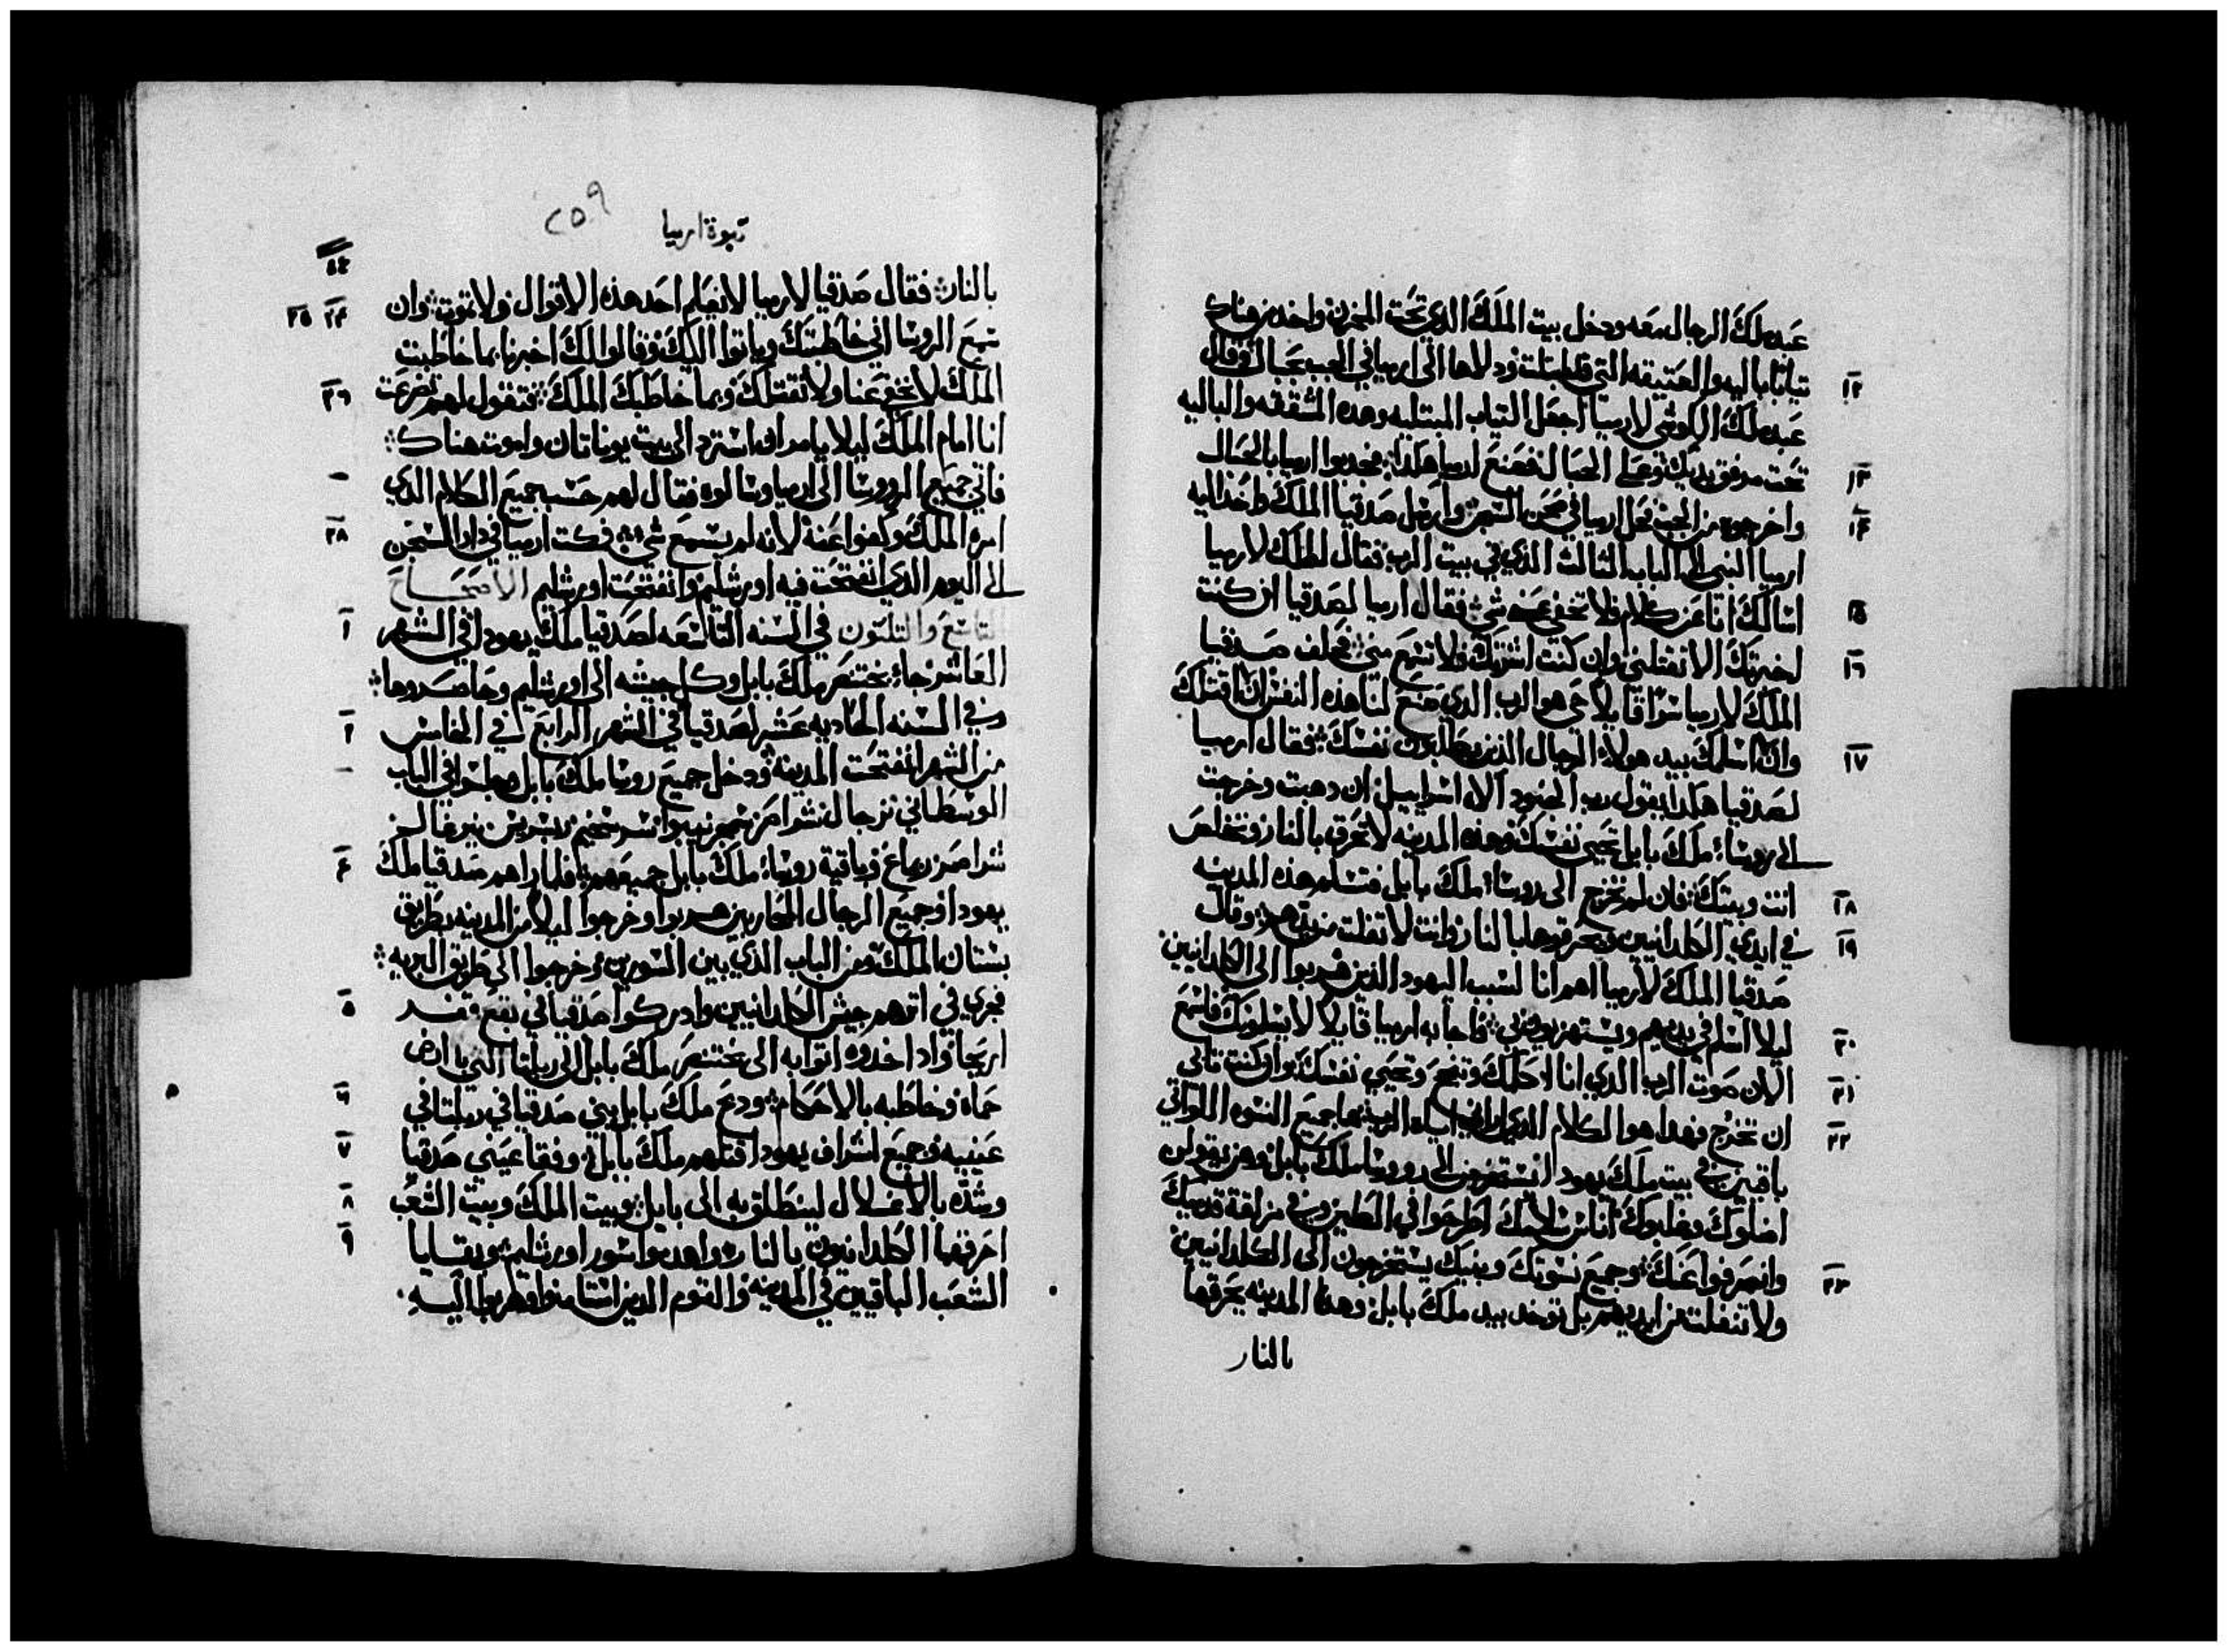 عبد ملك الرجال معه ودخل بيت الملك الذي تحت المخزن واخد من هناك
تيابا باليه والعتيقه التي قد ابتلت ودلاها الى ارميا في الجب بحبال وقال
١٢
عبد ملك الكوشي لارميا اجعل التياب المبتليه وهده المشققه والباليه
تحت مرفق يديك وعلى الحبال فصنع ارميا هكدا فجدبوا ارميا بالحبال
١٣
واخرجوه من الجب فحل ارميا في صحن السجن وارسل صدقيا الملك واخد اليه
١٤
ارميا النبي الى الباب الثالث الذي في بيت الرب فقال الملك لارميا
اسالك انا عن كلام فلا تخفي عني شي فقال ارميا لصدقيا ان كنت
١٥
اخبرتك الا تقتلني وان كنت اشرتك فلا تسمع مني فحلف صدقيا
١٦
الملك لارميا سرا قايلا حي هو الرب الدي صنع لنا هذه النفس ان اقتلك
وان اسلمك بيد هولاء الرجال الذين يطلبون نفسك فقال ارميا
١٧
لصدقيا هكدا يقول رب الجنود الاه اسراييل ان دهبت وخرجت
الى روسا ملك بابل تحيى نفسك وهذه المدينه لا تحرق بالنار وتخلص
انت وبيتك فان لم تخرج الى روسا ملك بابل فتسلم هذه المدينه
١٨
في ايدي الكلدانيين ويحرقوها بالنار وانت لا تفلت من يدهم وقال
١٩
صدقيا الملك لارميا اهم انا لسبب اليهود الذين هربوا الى الكلدانيين
ليلا اسلم في يديهم ويستهزيون بي فاجابه ارميا قايلا لا يسلمونك فاسمع
٢٠
الان صوت الرب الدي انا اكلمك وتنجح وتحيي نفسك وان كنت تابى
٢١
ان تخرج فهدا هو الكلام الدي اراني اياه الرب هاجميع النسوه اللواتي
٢٢
باقيين في بيت ملك يهودا يستخرجن الى روسا ملك بابل وهن يقولن
اضلوك وغلبوك اناس سلامتك اطرحوا في الطين وفي مزلقة قدميك
وانصرفوا عنك وجميع نسوتك وبنيك يستخرجون الى الكلدانيين
٢٣
ولا تنفلت من ايديهم بل توخد بيد ملك بابل وهده المدينه يحرقها
بالنار
نبوة ارميا
٢٥٩
بالنار فقال صدقيا لارميا لا يعلم احد هذه الاقوال ولا تموت وان
٢٤ ٢٥
سمع الروسا اني خاطبتك وياتوا اليك وقالوا لك اخبرنا بما خاطبت
الملك لا تخفي عنا ولا نقتلك وبما خاطبك الملك فتقول لهم تضرعت
٢٦
انا امام الملك ليلا يامر ان استرد الى بيت يوناتان واموت هناك
فاتي جميع الروسا الى ارميا وسالوه فقال لهم حسب جميع الكلام الدي
امره الملك وكفوا عنه لانه لم يسمع شي فمكت ارميا في دار السجن
٢٨
الى اليوم الدي انفتحت فيه اورشليم وانفتحت اورشليم الاصحاح
التاسع والتلتون في السنه التاسعه لصدقيا ملك يهودا في الشهر
١
العاشر جا بختنصر ملك بابل وكل جيشه الى اورشليم وحاصروها
وفي السنه الحاديه عشر لصدقيا في الشهر الرابع في الخامس
٢
من الشهر انفتحت المدينه ودخل جميع روسا ملك بابل وجلسوا في الباب
الوسطاني
وباقية روسا ملك بابل جميعهم فلما راهم صدقيا ملك
٤
يهودا وجميع الرجال المحاربين هربوا وخرجوا ليلا من المدينه بطريق
بستان الملك ومن الباب الذي بين السورين وخرجوا الى طريق البريه
فجري في اترهم جيش الكلدانيين وادركوا صدقيا في بقعة قفر
٥
اريحا واد اخدوه اتوا به الى بختنصر ملك بابل الى ربلتا التي بارض
حماه وخاطبه بالاحكام ودبح ملك بابل بني صدقيا في ربلتا في
٦
عينيه وجميع اشراف يهودا قتلهم ملك بابل وفقا عيني صدقيا
٧
وشده بالاغلال لينطلق به الى بابل وبيت الملك وبيت الشعب
٨
احرقها الكلدانيون بالنار واهدموا سور اورشليم وبقايا
٩
الشعب الباقيين في المدينه والقوم الدين استامنوا وهربوا اليه